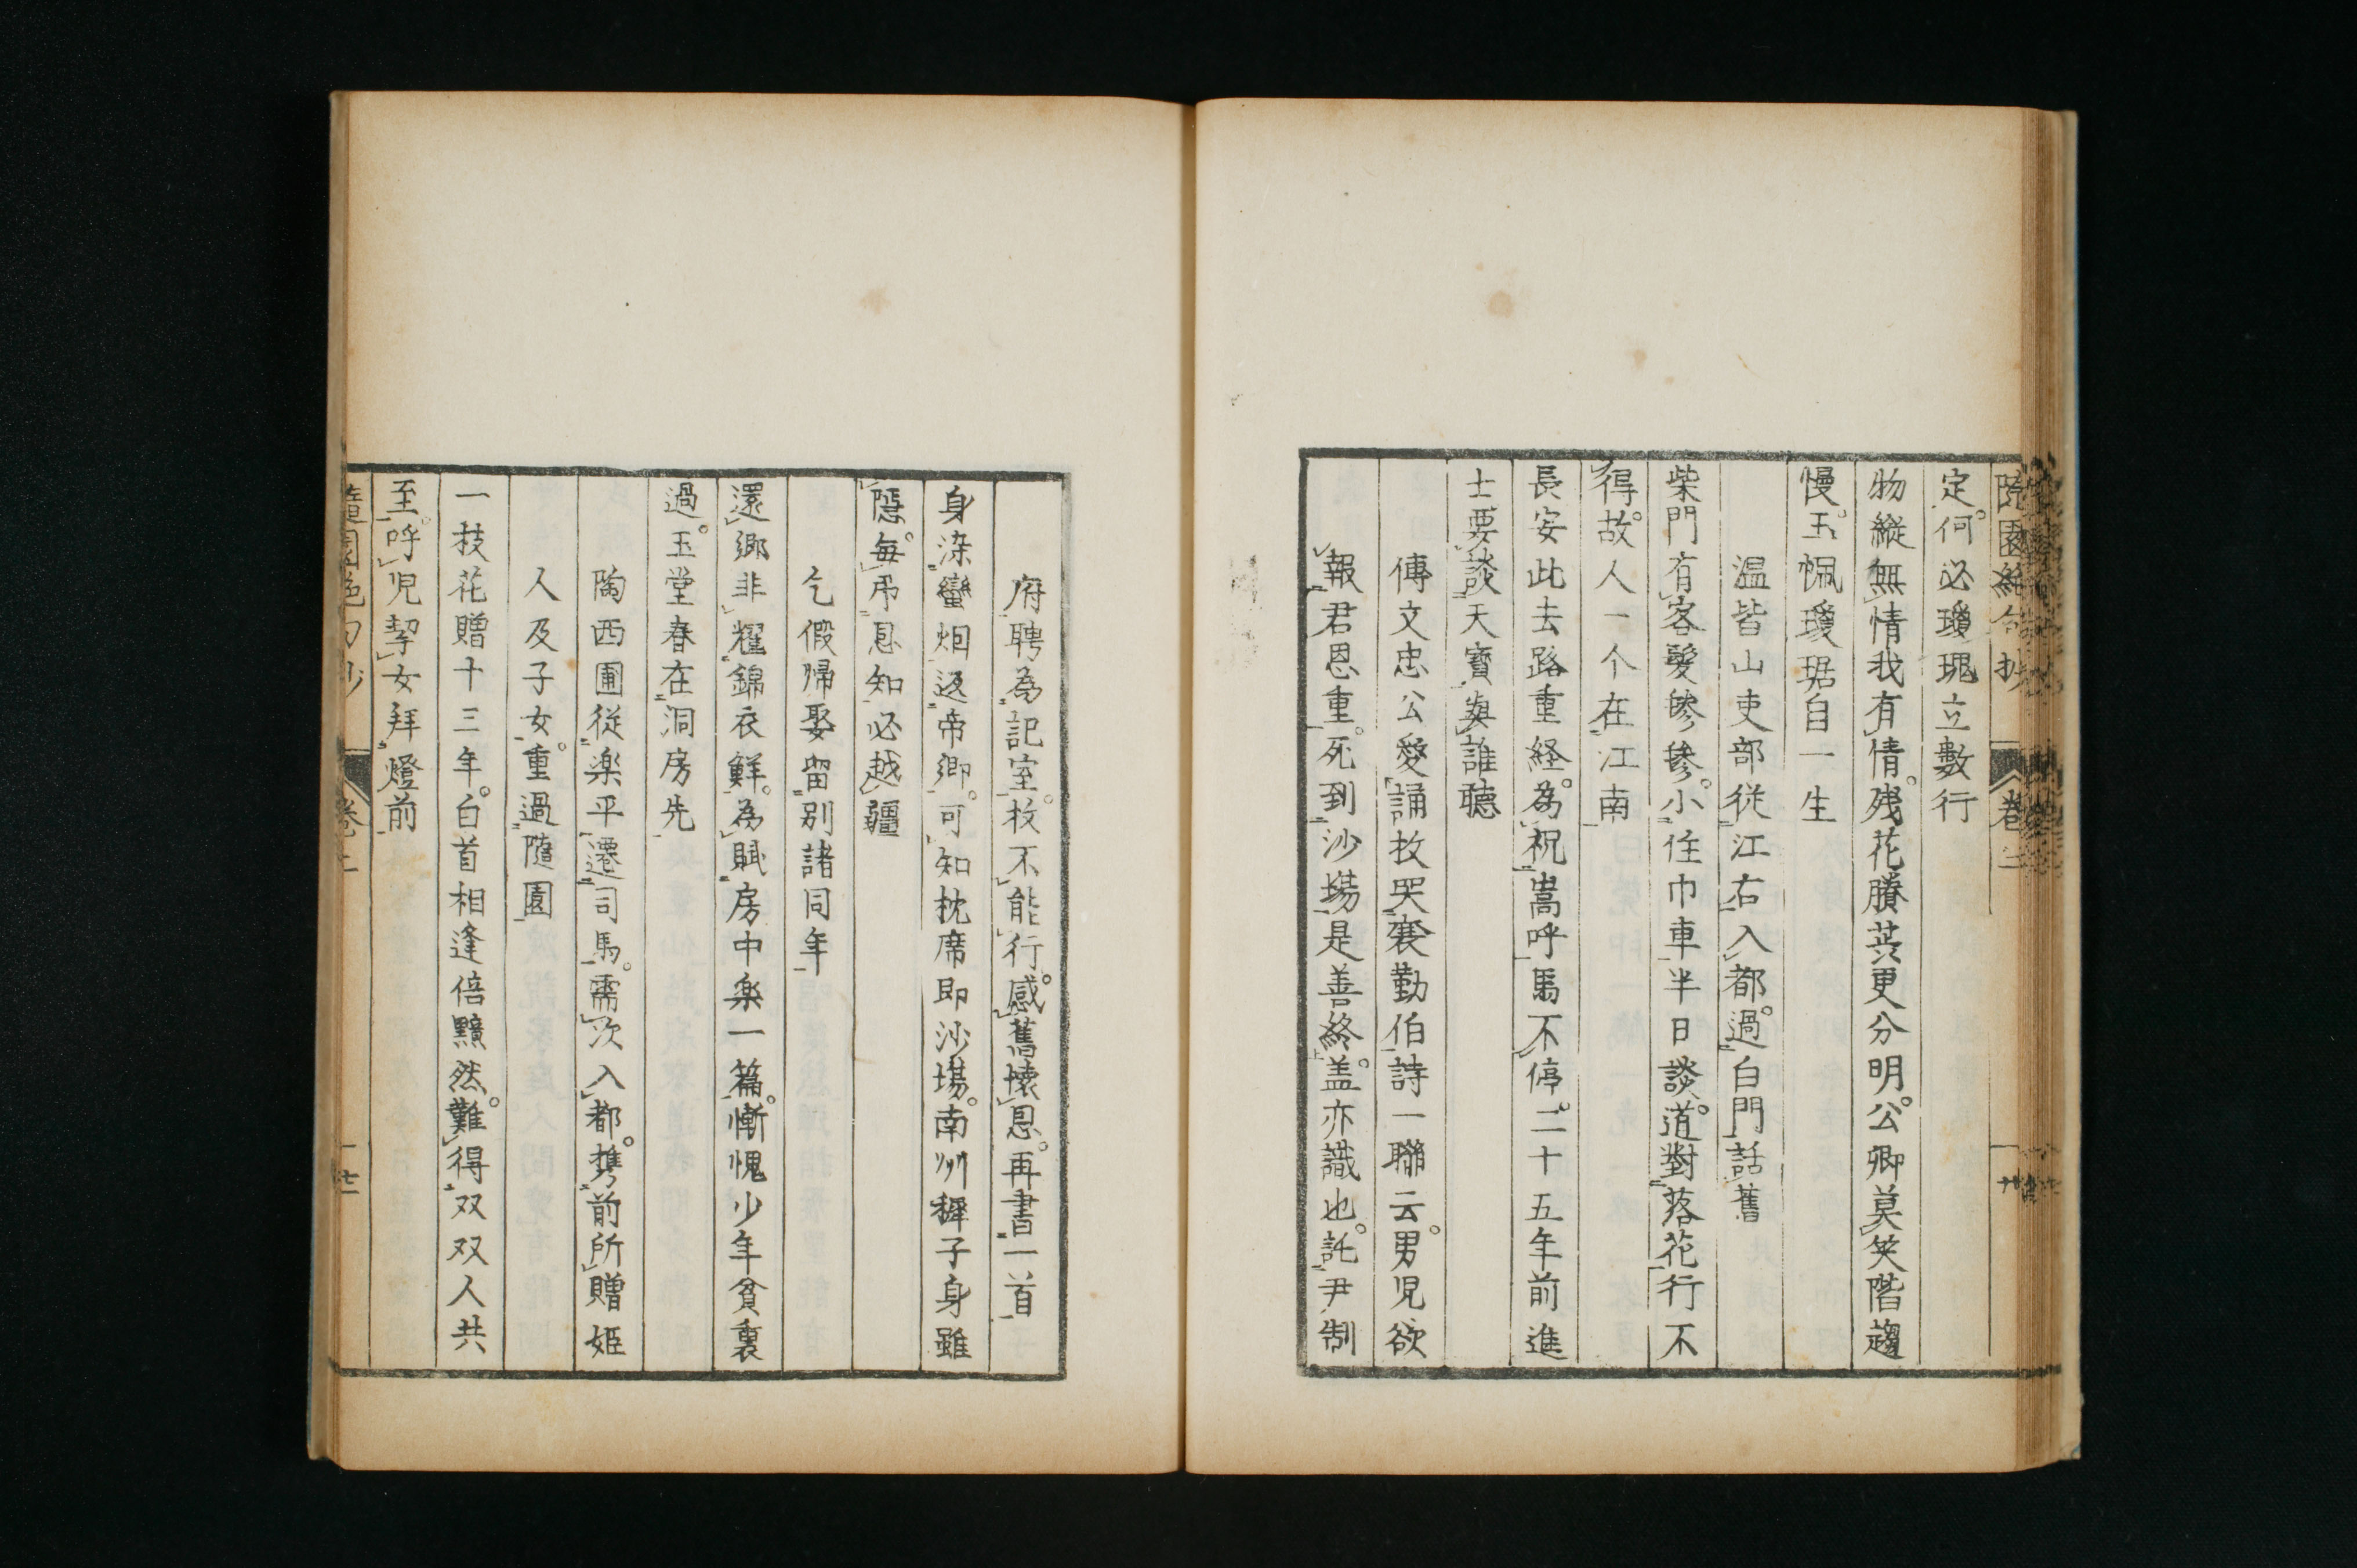 隨園絶句抄 卷上
定。何必瓊瑰立數行
物縱無情我有情。残花賸蕋更分明。公卿莫笑階趨
慢。玉佩瓊琚自一生
温皆山吏部從江右入都。過白門話舊
柴門有客鬢鬖鬖。小住巾車半日談。道對落花行不
得。故人一个在江南
長安此去路重経。為祝嵩呼馬不停。二十五年前進
士要談天寶與誰聴
傅文忠公愛誦枚哭襄勤伯詩一聯云。男児欲
報君恩重。死到沙場是善終。盖亦識也。託尹制
府聘為記室。枚不能行。感舊懐恩。再書一首
身染蠻烟返帝郷。可知枕席即沙場。南州穉子身雖
隠。毎弔恩知必越疆
乞假帰娶留別諸同年
還郷非耀錦衣鮮。為賦房中楽一篇。慚愧少年貧裏
過。玉堂春在洞房先
陶西圃従楽平遷司馬。需次入都。携前所贈姫
人及子女。重過隨園
一枝花贈十三年。白首相逢倍黯然。難得双双人共
至。呼児挈女拜燈前
隨園絶句抄 卷上